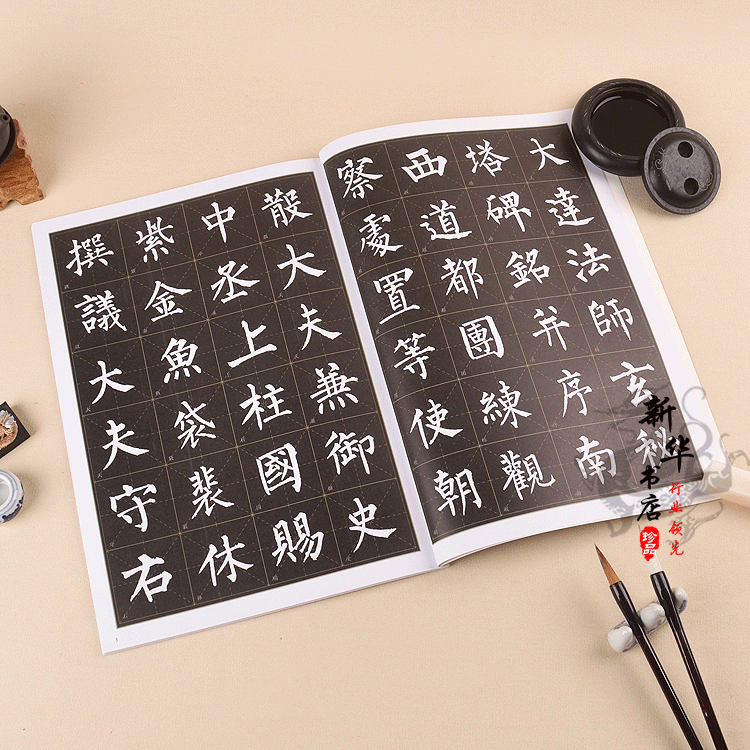 大達法師玄秘
塔碑銘并序南
西道都團練觀
察處置等使朝
散大夫兼御史
中丞上柱國賜
紫金魚袋裴休
撰議大夫守右
1
新华
书店
行业领先
珍品